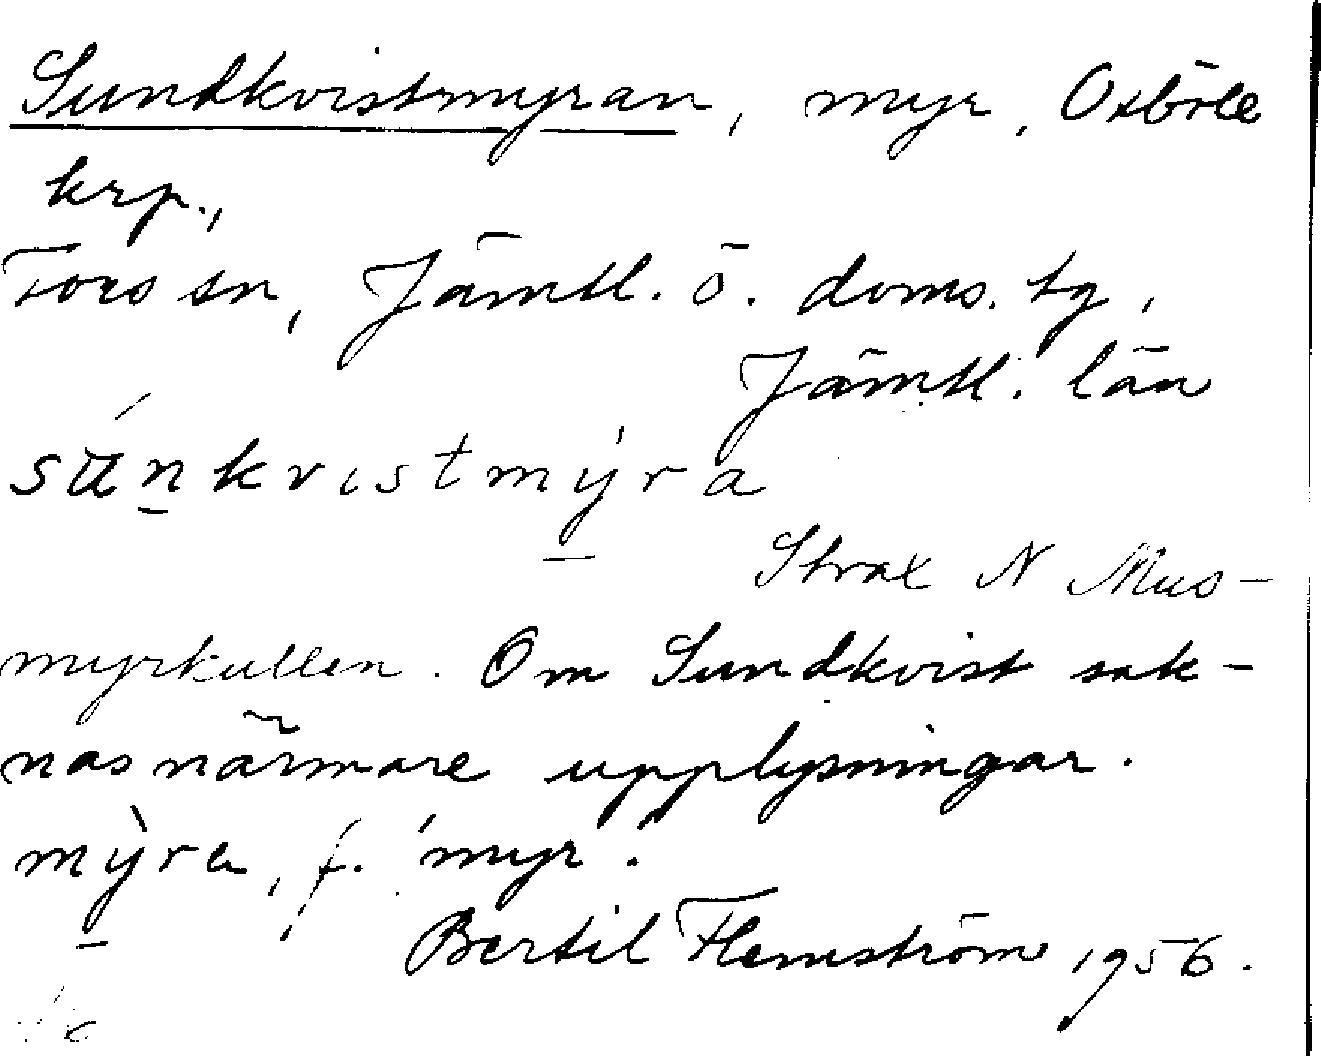 Sundkvistmyran, myr, Oxböle
krp.,
Fors sn, Jämtl. ö. doms. tg,
Jämtl. län
súnkvistmýra
Strax N Mus-
myrkullen. Om Sundkvist sak-
nas närmare upplysningar.
mỳra, f. 'myr'.
Bertil Flemström 1956.